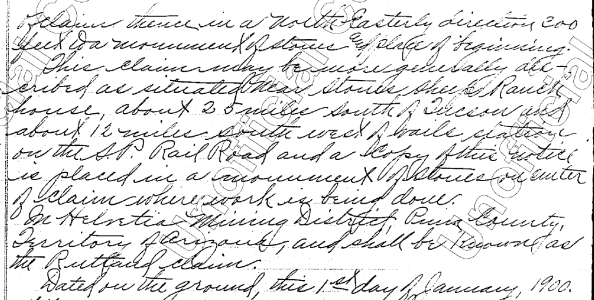 of claim thence in a North Easterly direction 300
feet to a monument of stones & place of beginning.
This claim may be more generally des-
cribed as situated near stones sheep Ranch
house, about 25 miles south of Tucson and
about 12 miles south west of vails station
on the S.P. Rail Road and a Copy of this notice
is placed in a monument of stones on center
of claim where work is being done.
In Helvetia Mining District, Pima County,
Territory of Arizona, and shall be known as
the Rutland claim.
Dated on the ground, this 1st day of January, 1900.
Unofficial